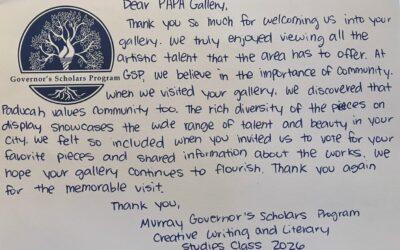 Dear PAPA Gallery,
Thank you so much for welcoming us into your
gallery. We truly enjoyed viewing all the
artistic talent that the area has to offer. At
GSP, we believe in the importance of community.
Governor's Scholars Program
When we visited your gallery, we discovered that
Paducah values community too. The rich diversity of the pieces on
display showcases the wide range of talent and beauty in your
city. We felt so included when you invited us to vote for your
favorite pieces and shared information about the works. We
hope your gallery continues to flourish. Thank you again
for the memorable visit.
Thank you,
Murray Governor's Scholars Program
Creative Writing and Literary
Studies Class 2026